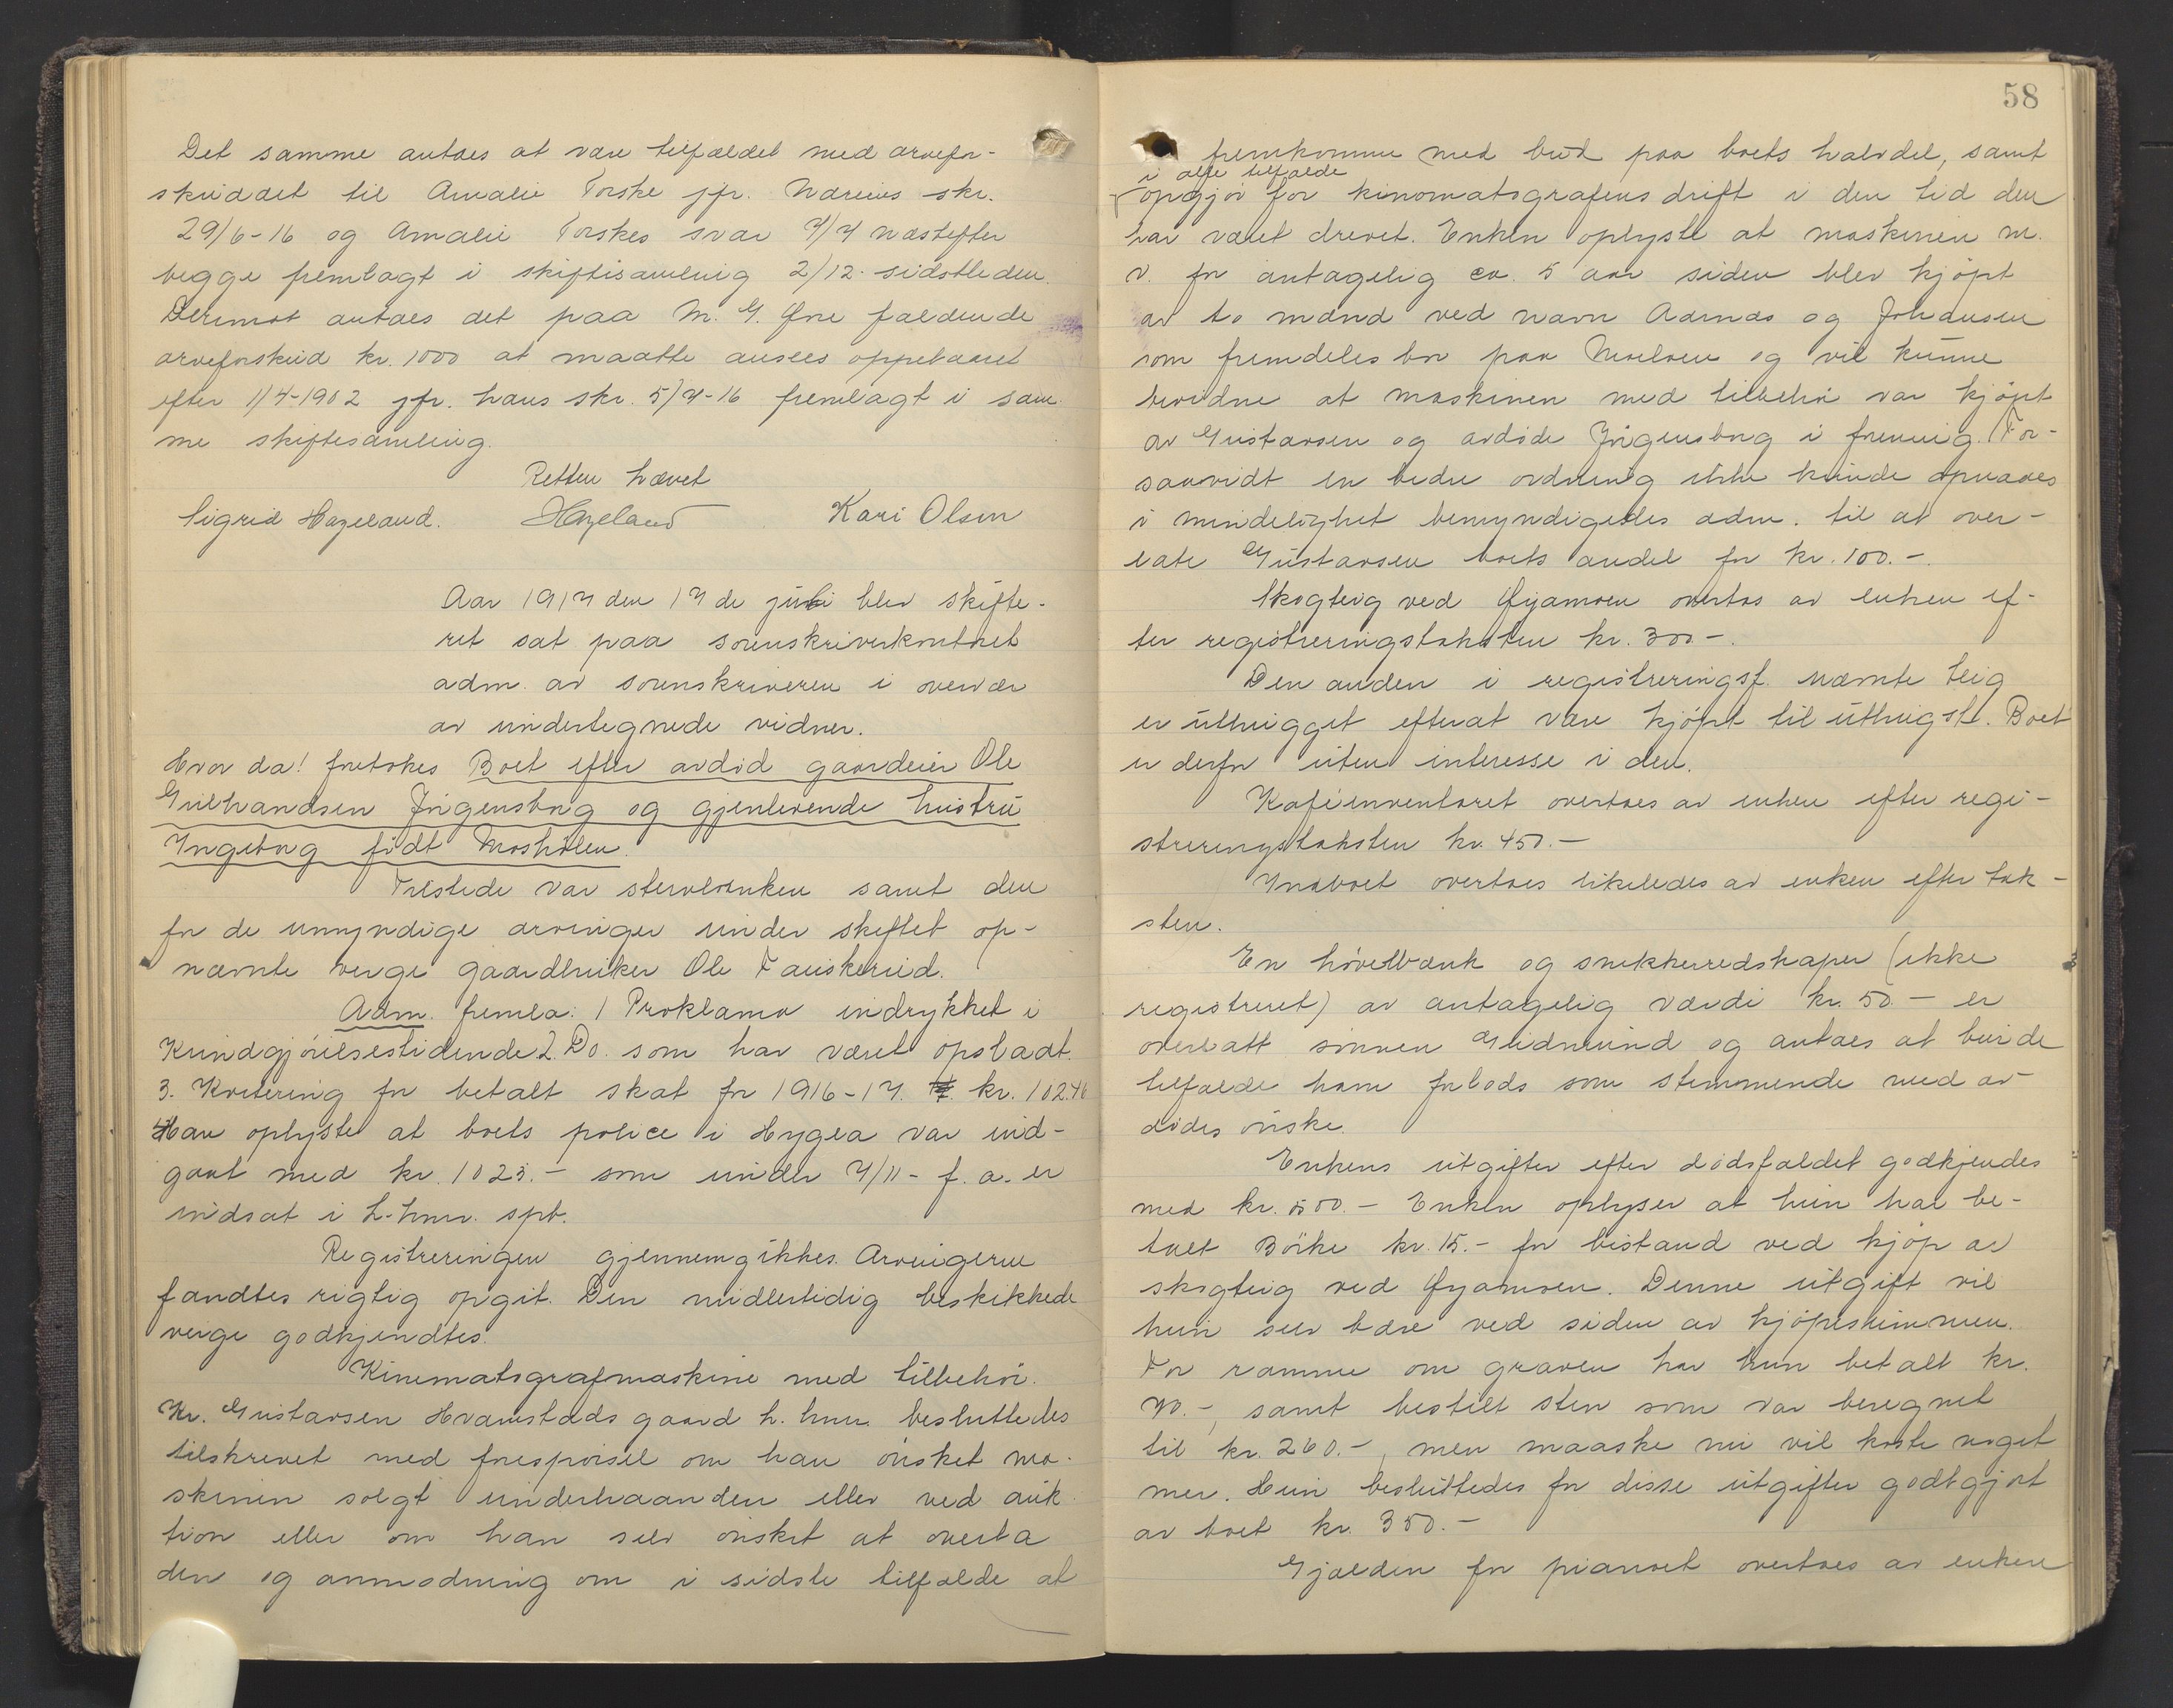 Det samme antaes at være tilfældet med arvefor-
skuddet til Amalie Torske jfr. Værnes skr.
29/6-16 og Amalie Torskes svar 7/7 næstefter
begge fremlagt i skiftisamling 2/12. sidstleden.
Derimot antaes det paa M. G. Øne faldende
arveforskud kr. 1000 at maatte ansees oppebaaret
efter 1/4-1902 jfr. hans skr. 5/7-16 fremlagt i sam-
me skiftesamling.
Retten hævet
Sigrid Hazeland. Hazeland Kari Olsen
Aar 1917 den 17de juli blev skifte-
ret sat paa sorenskriverkontoret
adm. av sorenskriveren i overvær
av undertegnede vidner.
Hvor da! foretokes Boet efter avdød gaardeier Ole
Gulbrandsen Jørgensborg og gjenlevende hustru
Ingeborg født Mosholen.
Tilstede var stervboenken samt den
for de umyndige arvinger under skiftet op-
nævnte verge gaardbruker Ole Fauskerud.
Adm. fremla: 1 Proklama indrykket i
Kundgjørelsestidende 2. Do. som har været opslaat.
3. Kvitering for betalt skat for 1916-17. kr. 102.76
Han oplyste at boets police i Hygea var ind-
gaat med kr. 1023.- som under 7/11- f. a. er
indsat i L-hmr. spb.
Registreringen gjennemgikkes. Arvingerne
fandtes rigtig opgit. Den midlertidig beskikkede
verge godkjendtes.
Kinematografmaskine med tilbehør.
Kr. Gustavsen Hvamstads gaard L. hmr. besluttedes
tilskrevet med forespørsel om han ønsket ma-
skinen solgt underhaanden eller ved auk-
tion eller om han selv ønsket at overta
den og anmodning om i sidste tilfælde at
58
fremkomme med bud paa boets halvdel, samt
i alle tilfælde
opgjør for kinomatografens drift i den tid den
har været drevet. Enken oplyste at maskinen m.
v. for antagelig ca. 5 aar siden blev kjøpt
av to mænd ved navn Aarnæs og Johansen
som fremdeles bor paa Moelven og vil kunne
bevidne at maskinen med tilbehør var kjøpt
av Gustavsen og avdøde Jørgensborg i forening. For-
saavidt en bedre ordning ikke kunde opnaaes
i mindelighet bemyndigedes adm. til at over-
late Gustavsen boets andel for kr. 100.-.
Skogteig ved Øyamoen overtas av enken ef-
ter registreringstaksten kr. 300-.
Den anden i registreringsf. nævnte teig
er uthugget efterat være kjøpt til uthugst. Boet
er derfor uten interesse i den.
Kaféinventaret overtaes av enken efter regi-
streringstaksten kr. 450.-
Indboet overtaes likeledes av enken efter tak-
sten.
En høvelbænk og snekkerredskaper (ikke
registreret) av antagelig værdi kr. 50.- er
overlatt sønnen Gudmund og antaes at burde
tilfalde ham forlods som stemmende med av-
dødes ønske.
Enkens utgifter efter dødsfaldet godkjendes
med kr. 500.- Enken oplyser at hun har be-
talt Børke kr. 15.- for bistand ved kjøp av
skogteig ved Øyamoen. Denne utgift vil
hun selv bære ved siden av kjøpesummen.
For ramme om graven har hun betalt kr.
70.-, samt bestilt sten som var beregnet
til kr. 260.-, men maaske nu vil koste noget
mer. Hun besluttedes for disse utgifter godtgjort
av boet kr. 350.-
Gjælden for pianoet overtaes av enken